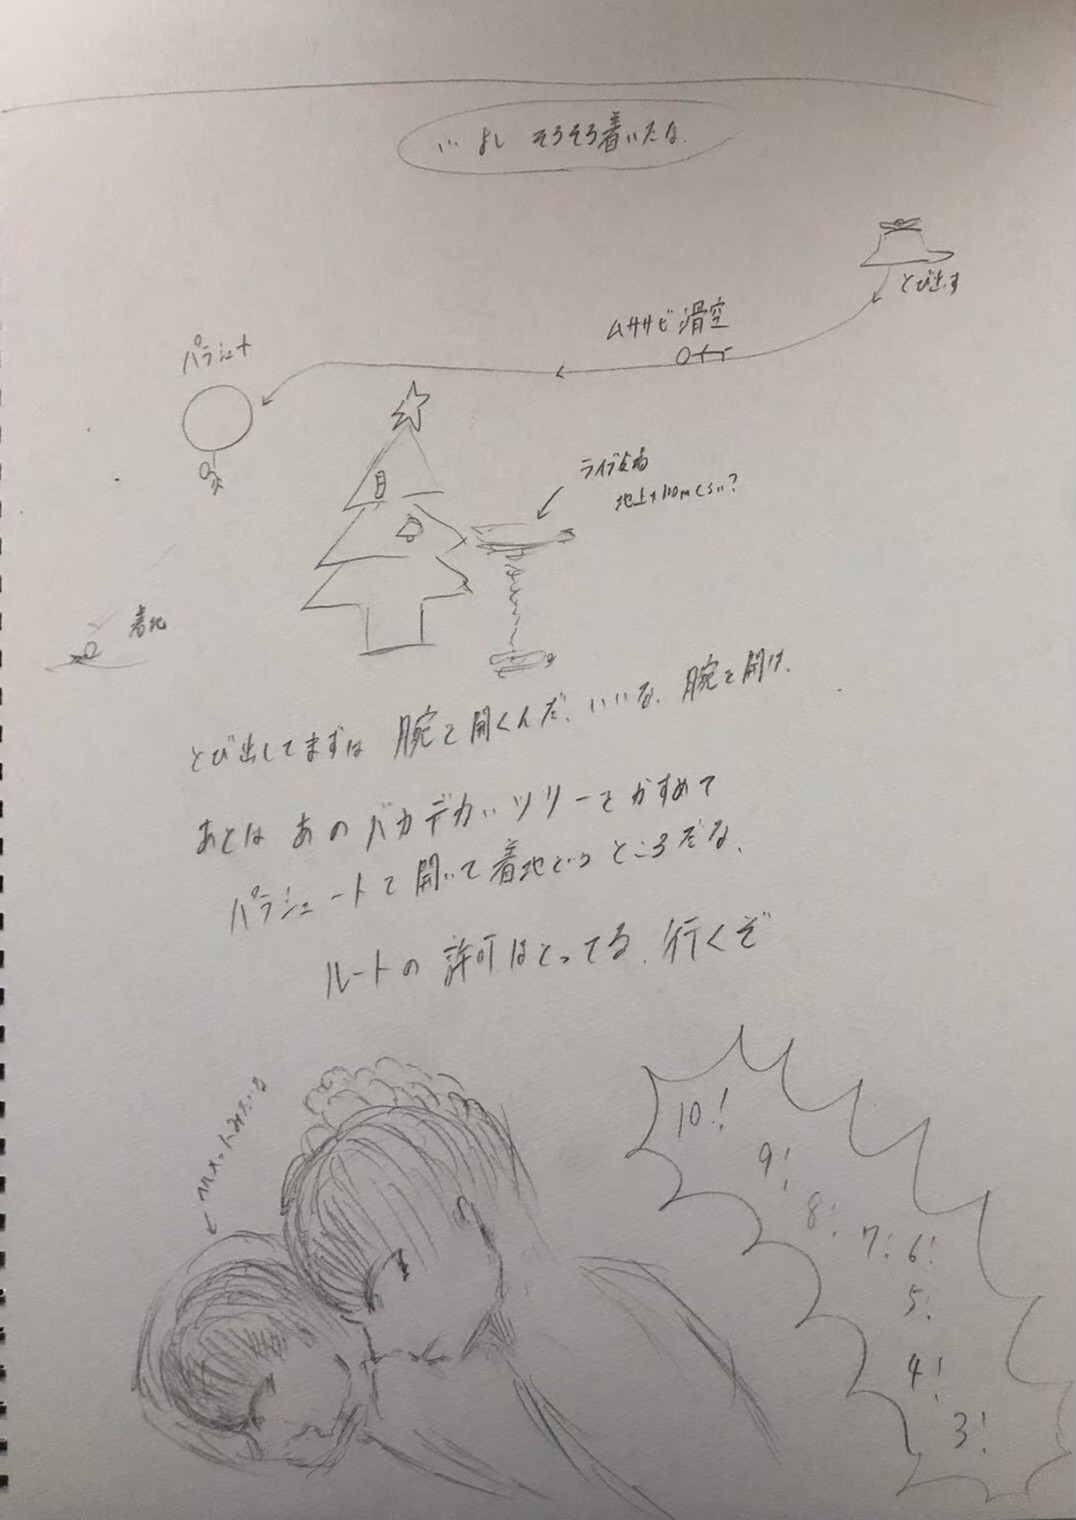 … よし そろそろ着いたな.
とび出す
ムササビ滑空
パラシュート
ライブ会場
地上+100mくらい?
着地
とび出してまずは 腕を開くんだ、いいな、腕を開け.
あとは あの バカデカいツリーを かすめて
パラシュートを開いて着地といったところだな、
ルートの 許可はとってる. 行くぞ
ヘルメットみたいな
10!
9!
8!
7!
6!
5!
4!
3!